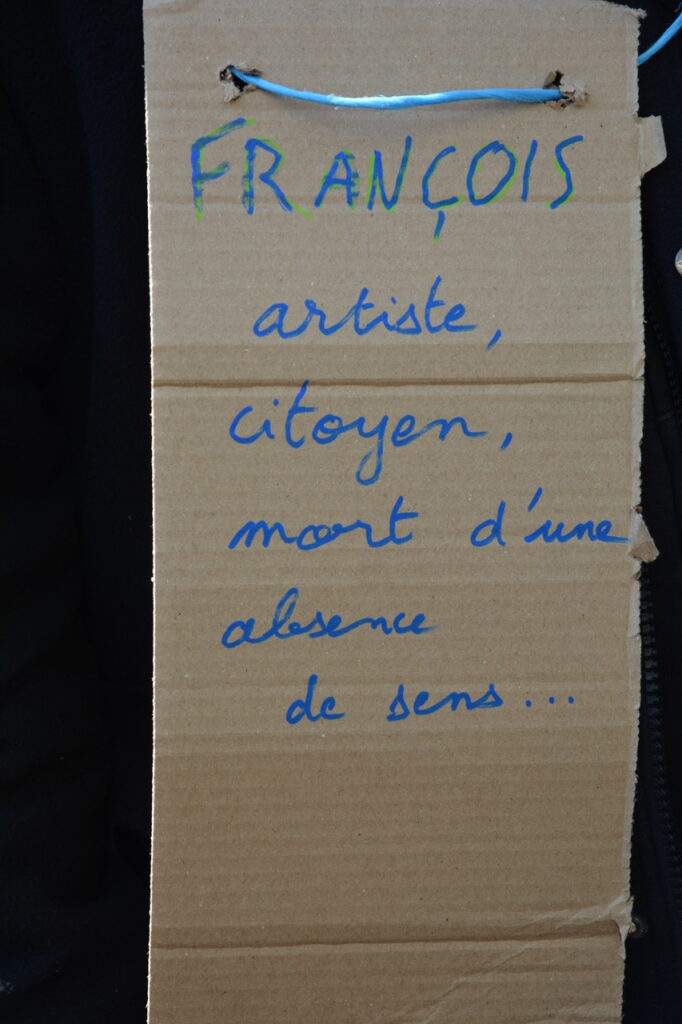 FRANÇOIS
artiste,
citoyen,
mort d'une
absence
de sens...